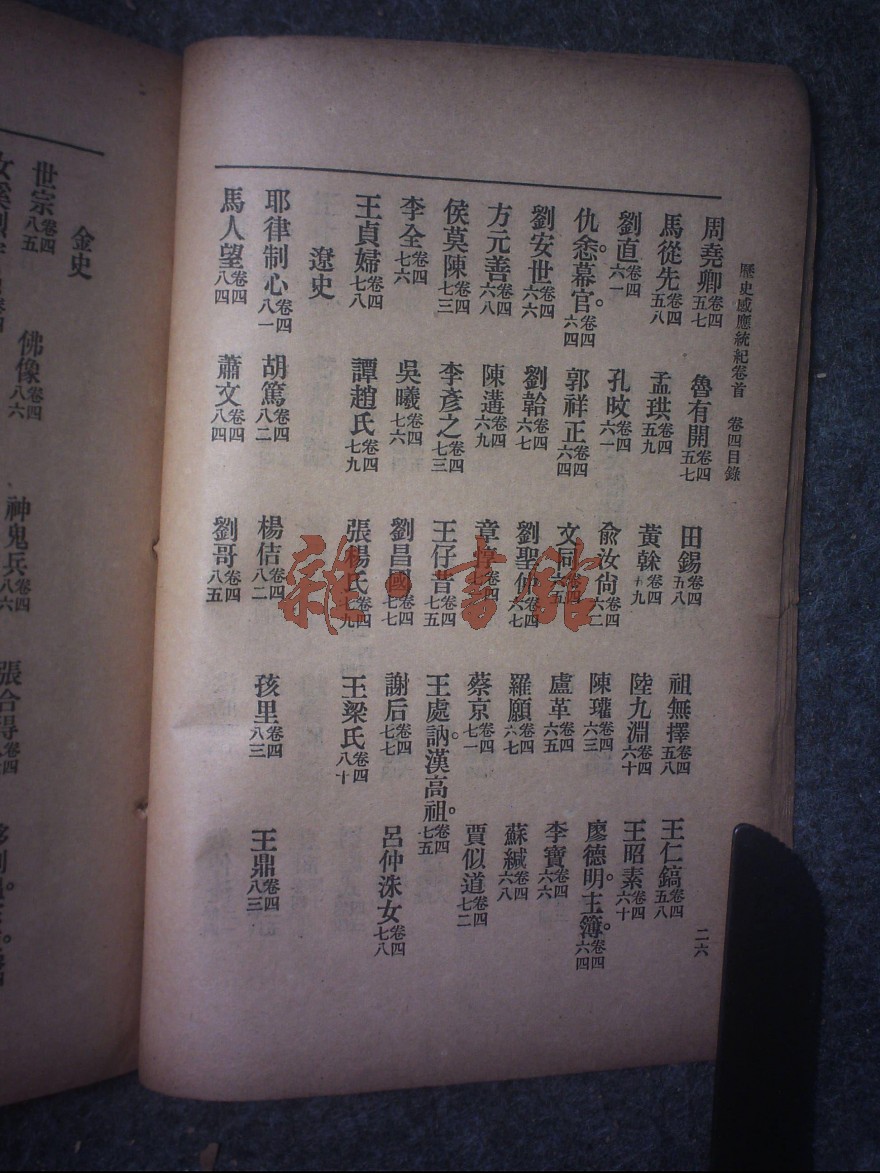 歷史感應統紀卷首　卷四目錄　二六
周堯卿卷四五七　魯有開卷四五七　田錫卷四五八　祖無擇卷四五八　王仁鎬卷四五八
馬從先卷四五八　孟珙卷四五九　黃榦卷四五九　陸九淵卷四六十　王昭素卷四六十
劉直卷四六一　孔旼卷四六一　俞汝尚卷四六二　陳瓘卷四六三　廖德明。主簿。卷四六四
仇悆。幕官。卷四六四　郭祥正卷四六四　文同卷四六五　盧革卷四六五　李寶卷四六六
劉安世卷四六六　劉韐卷四六七　劉聖仲卷四六七　羅願卷四六七　蘇緘卷四六八
方元善卷四六八　陳遘卷四六九　章惇卷四　蔡京卷四七一　賈似道卷四七二
侯莫陳卷四七三　李彥之卷四七三　王仔昔卷四七五　王處訥。漢高祖。卷四七五
李全卷四七六　吳曦卷四七六　劉昌國卷四七七　謝后卷四七七　呂仲洙女卷四七八
王貞婦卷四七八　譚趙氏卷四七九　張楊氏卷四七九　王梁氏卷四八十
遼史
耶律制心卷四八一　胡篤卷四八二　楊佶卷四八二　孩里卷四八三　王鼎卷四八三
馬人望卷四八四　蕭文卷四八四　劉哥卷四八五
金史
世宗卷四八五　佛像卷四八六　神鬼兵卷四八六　張合得卷四
雜·書館